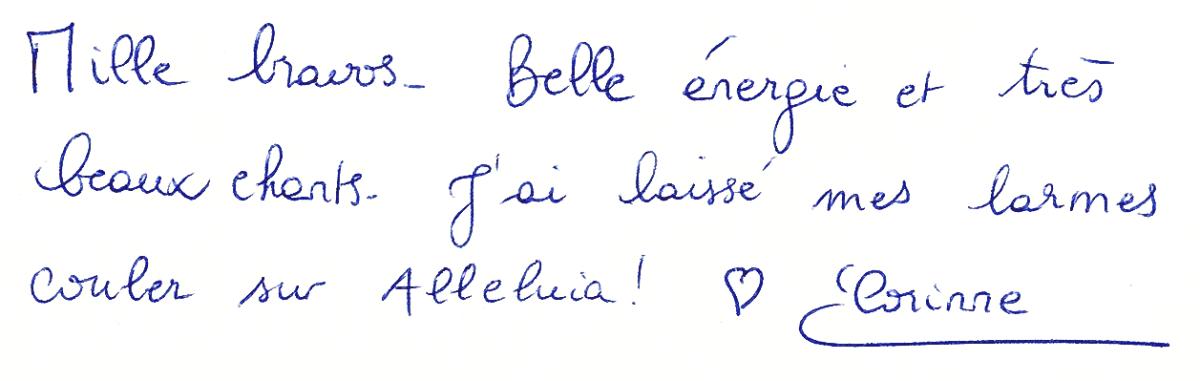 Mille bravos. Belle énergie et très
beaux chants. J'ai laissé mes larmes
couler sur Alleluia! ♡ Corinne